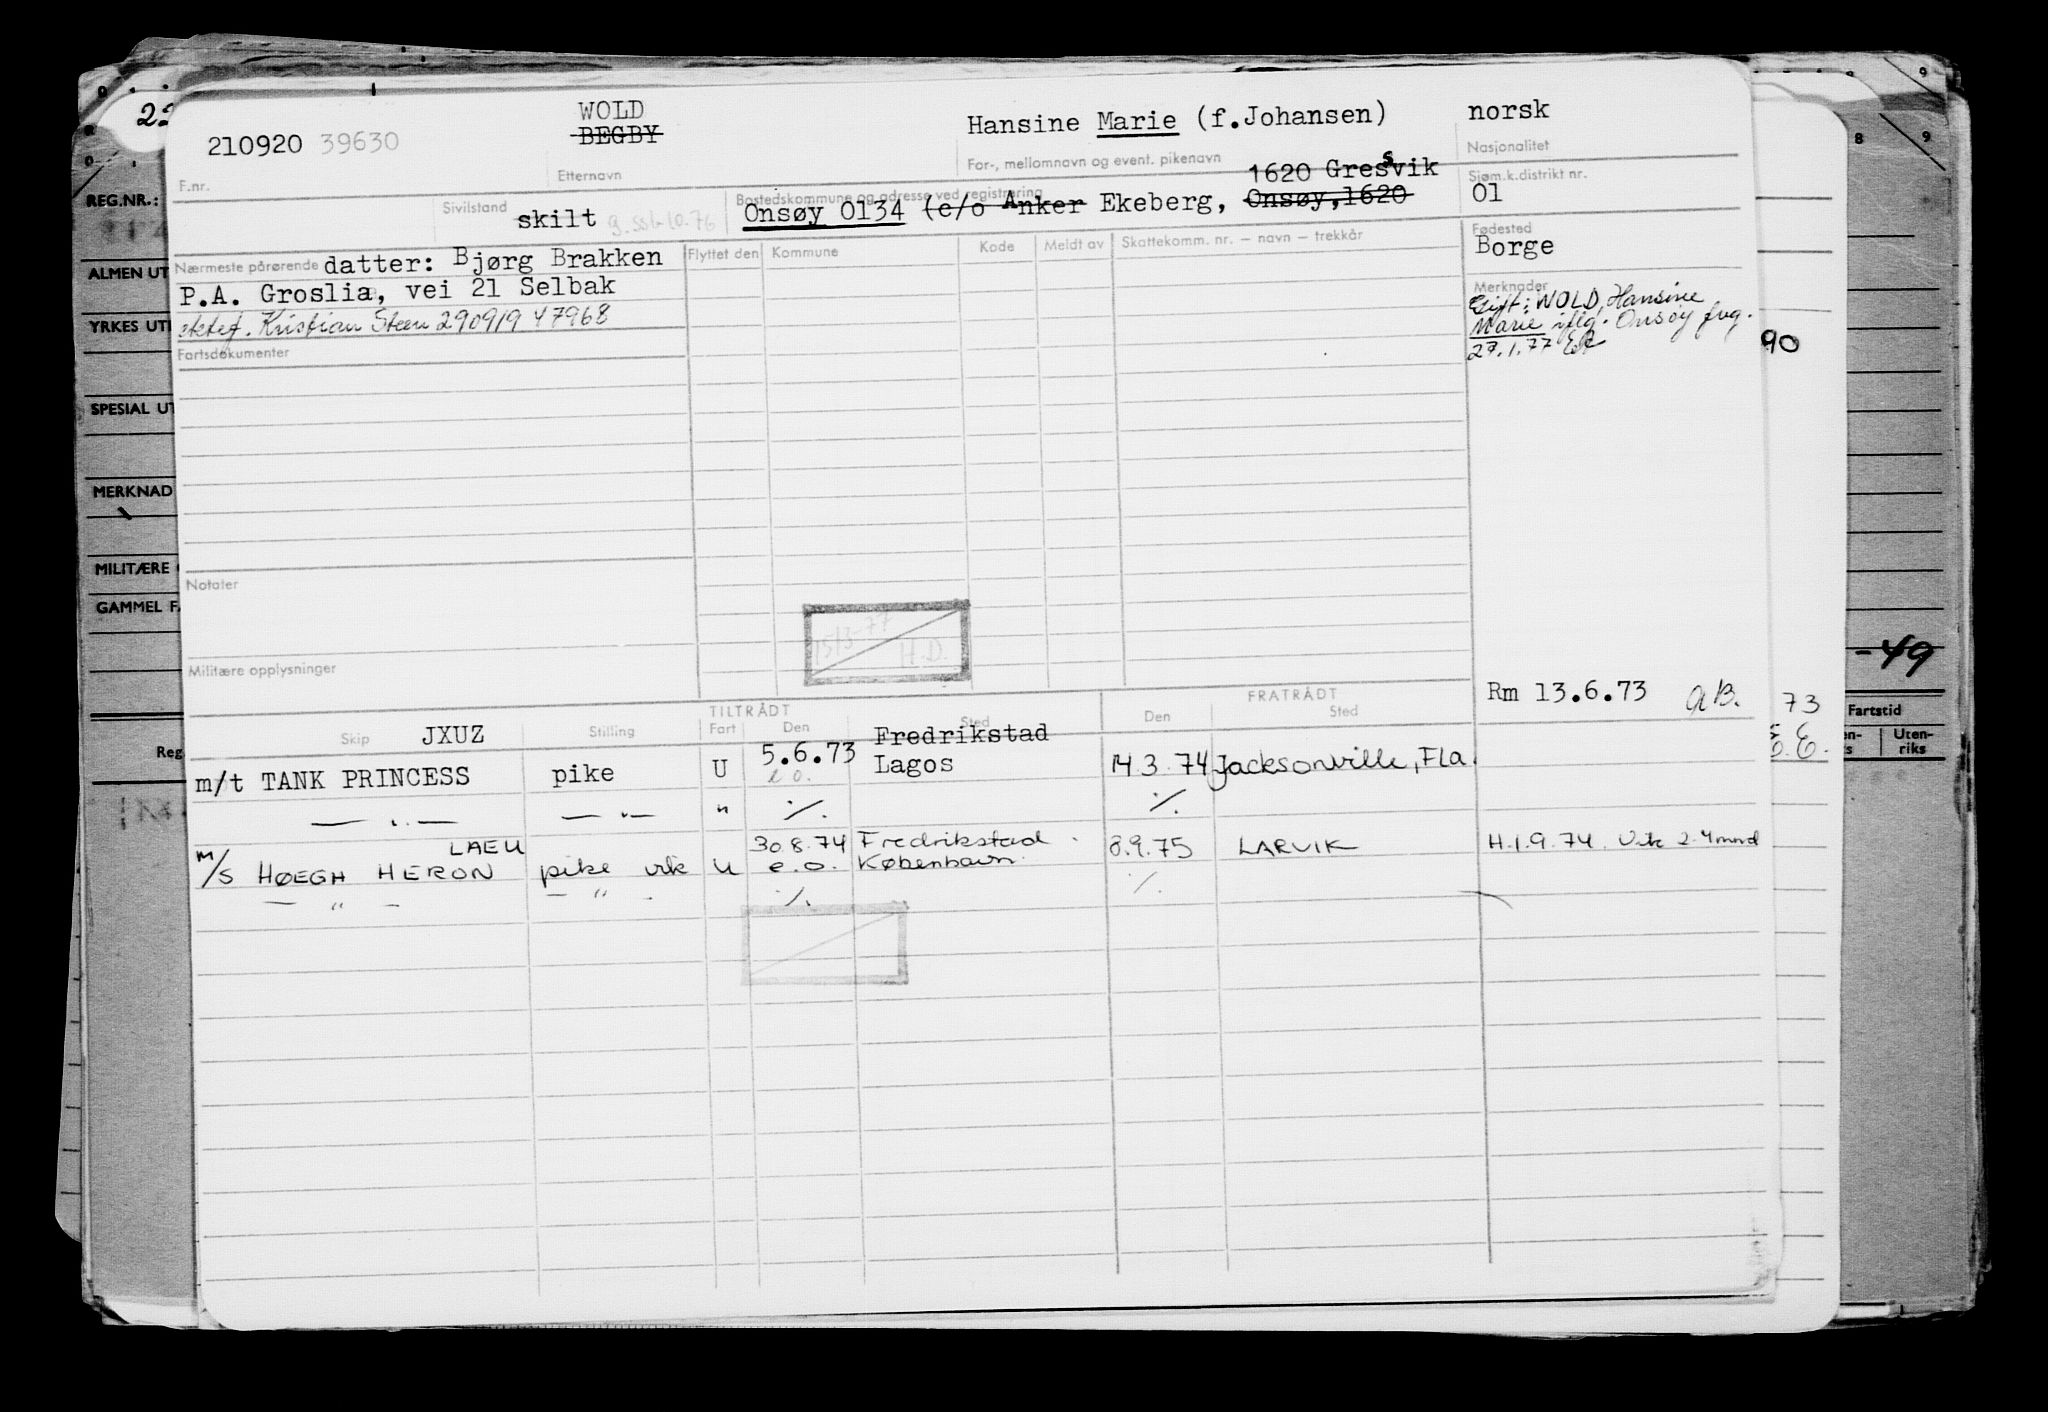 22
WOLD
BEGBY
Hansine Marie (f.Johansen)
norsk
210920 39630
F.nr.
Etternavn
For-, mellomnavn og event. pikenavn
Nasjonalitet
1620 Gressvik
Sivilstand
skilt
Bostedskommune og adresse ved registrering
Onsøy 0134 (c/o Anker Ekeberg, Onsøy, 1620
Sjøm.k.distrikt nr.
01
Fødested
Borge
Nærmeste pårørende datter: Bjørg Brakken
P.A. Groslia, vei 21 Selbak
ektef. Kristian Steen 290919 47968
Flyttet den
Kommune
Kode
Meldt av
Skattekomm. nr. – navn – trekkår
Merknader
Gift: WOLD, Hansine
Marie iflg. Onsøy
27.1.77
Fartsdokumenter
Notater
15/3-77
H.D.
Militære opplysninger
Rm 13.6.73 AB.
TILTRÅDT
FRATRÅDT
Skip
Stilling
Fart
Den
Sted
Den
Sted
JXUZ
Fredrikstad
m/t TANK PRINCESS pike U 5.6.73 Lagos 14.3.74 Jacksonville, Fla.
e.o.
— " — — " — " ./. ./.
LAEU 30.8.74 Fredrikstad 8.9.75 LARVIK H.1.9.74.
m/s HØEGH HERON pike vik U e.o. København
— " — — " — ./. ./.
REG.NR.:
ALMEN UT
YRKES UT
SPECIAL UT
MERKNAD
MILITÆRE
GAMMEL F
Reg
8
9
90
-49
73
Fartstid
Uten-
riks